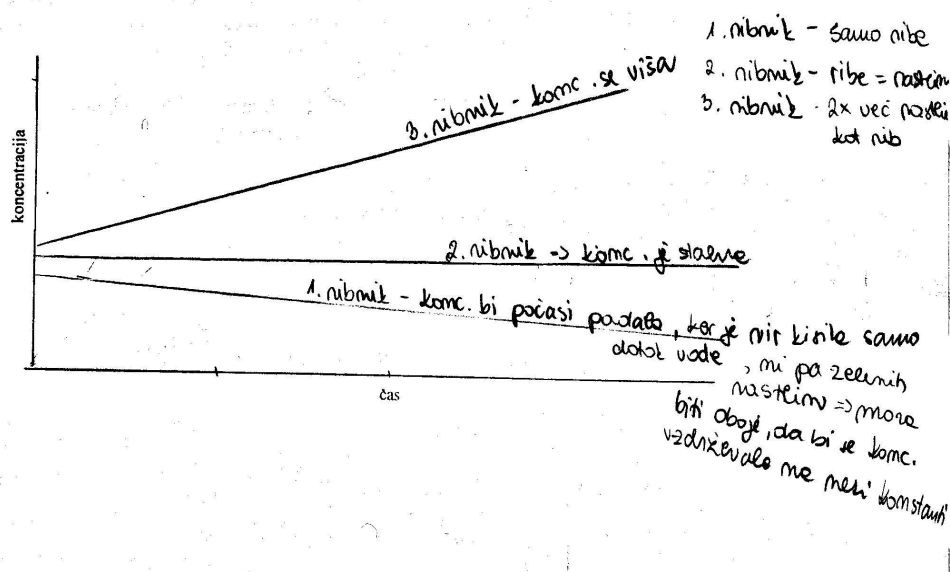 1. ribnik - samo ribe
2. ribnik - ribe = rastlin
3. ribnik - 2x več rastlin
kot rib
3. ribnik - konc. se viša
koncentracija
2. ribnik -> konc. je stalna
1. ribnik - konc. bi počasi padala, ker je vir kisika samo
dotok vode, ni pa zelenih
rastlin => mora
biti oboje, da bi se konc.
vzdrževala na neki konstanti
čas